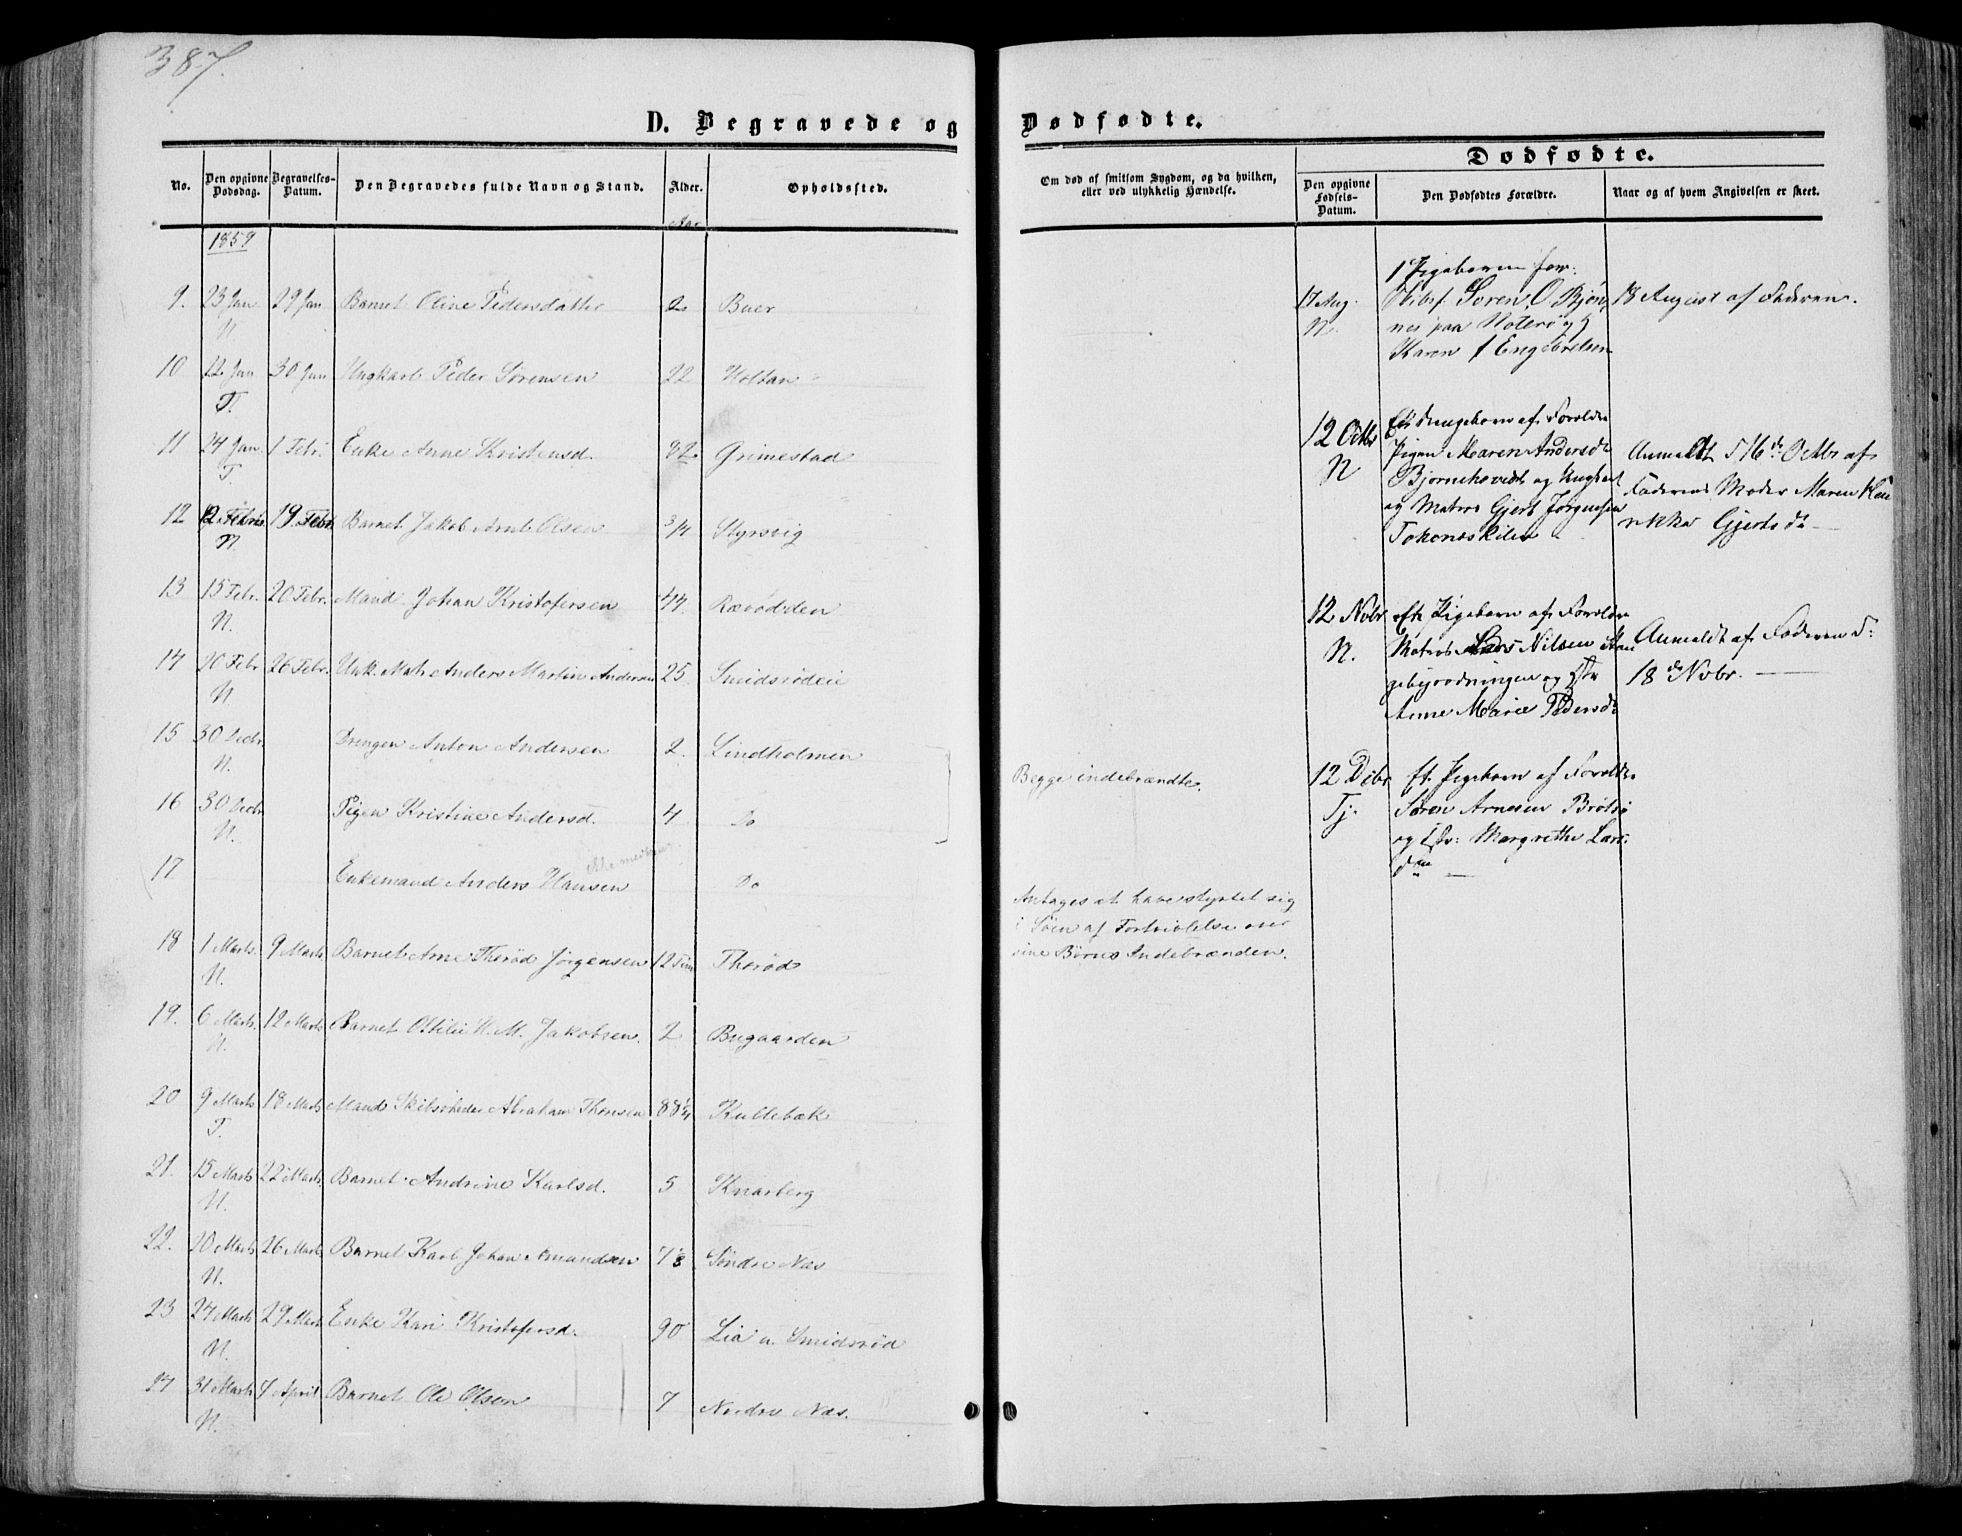 387.
D. Begravede og
No.
Den opgivne Dødsdag.
Begravelses-Datum.
Den Begravedes fulde Navn og Stand.
Alder.
Opholdssted.
Aar
1859
9. 23 Jan 29 Jan Barnet Oline Pedersdatter 2 Buer
N.
10 22 Jan 30 Jan Ungkarl Peder Sørensen 22 Holtan
T.
11 24 Jan 1 Febr. Enke Anne Kristensd. 82 Grimestad
T.
12 12 Febr 19 Febr. Barnet Jakob Arnt Olsen 3/4 Styrsvig
N.
13 15 Febr. 20 Febr. Mand Johan Kristofersen 44. Rævødden
N.
14 20 Febr 26 Febr. Unk. Matr. Anders Martin Andersen 25 Smidsrødeie
N
15 30 Decbr. Drengen Anton Andersen 2. Lindholmen
N.
16 30 Decbr. Pigen Kristine Andersd. 4 Do
N.
17 Enkemand Anders Hansen Do
18 1 Marts. 9 Marts Barnet Arne Therød Jørgensen 12 Tim Therød
N.
19. 6 Marts. 12 Marts Barnet Ottilie H. M. Jakobsen. 2 Bugaarden
N.
20 9 Marts 18 Marts Mand Skibsreder Abraham Thonsen 88 1/4 Kullebæk
T.
21. 15 Marts 22 Marts. Barnet Andrine Karlsd. 5 Knarberg
N.
22. 20 Marts 26 Marts Barnet Karl Johan Amundsen Søndre Næs
N.
23 24 Marts 29 Marts Enke Kari Kristofersd. 90 Lia u. Smidsrød
N.
24 31 Marts 7 April Barnet Ole Olsen 7 Nordre Næs.
N.
Dødfødte.
Dødfødte.
Om død af smitsom Sygdom, og da hvilken,
eller ved ulykkelig Hændelse.
Den opgivne Fødsels-Datum.
Den Dødfødtes Forældre.
Naar og af hvem Angivelsen er skeet.
1 Pigebarn for:
17 Aug. Skibsf. Søren O Bjøn 18 August af Faderen.
N. nes paa Nøterø og
Karen f Engebretsen
Et Drengebarn af Forældre
12 Octbr Pigen Maren Andersdr Anmeldt 16de Octbr af
N Bjørnehvedt og Ungkarl Faderens Moder Maren
og Matros Gjert Jørgensen Gjertsdr
12 Novbr et Pigebarn af Forældre Anmeldt af Faderen d:
N. Matros Lars Nilsen 18de Novbr.
og Hstr
Anne Marie Pedersdr
Begge indebrændte.
12 Dcbr Et Pigebarn af Forældre
Tj. Søren Arnesen Brøtsø
og Hstr: Margrethe Lars
Antages at have styrtet sig
i Søen af Fortvivlelse over
sine Børns Indebrænden.